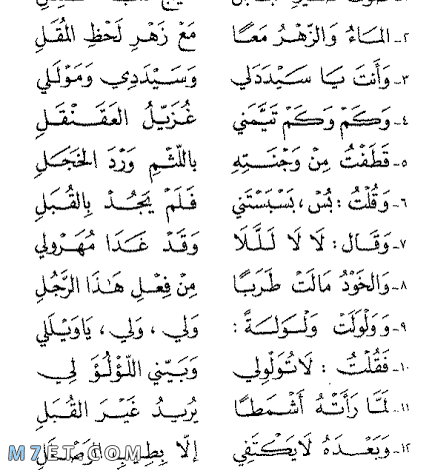 ٢- المَاءُ وَالزَّهْرُ مَعًا مَعْ زَهْرِ لَحْظِ المُقَلِ
٣- وَأَنْتَ يَا سَيِّدَ لِي وَسَيِّدِي وَمَوْلَي لِي
٤- وَكَمْ وَكَمْ تَيَّمَنِي غُزَيِّلُ العَقَنْقَلِ
٥- قَطَفْتُ مِنْ وَجْنَتِهِ بِاللَّثْمِ وَرْدَ الخَجَلِ
٦- وَقُلْتُ: بُسْ، بَسْبَسْتَنِي فَلَمْ يَجُدْ بِالقُبَلِ
٧- وَقَالَ: لَا لَا لَلَلَا وَقَدْ غَدَا مُهَرْوِلِي
٨- وَالخَوْدُ مَالَتْ طَرَبًا مِنْ فِعْلِ هَٰذَا الرَّجُلِ
٩- وَوَلْوَلَتْ وَلْوَلَةً: وَلِي، وَلِي، يَاوَيْلَ لِي
١٠- فَقُلْتُ: لَا تُوَلْوِلِي وَبَيِّنِي اللُّؤْلُؤَ لِي
١١- لَمَّا رَأَتْهُ أَشْمَطًا يُرِيدُ غَيْرَ القُبَلِ
١٢- وَبَعْدَهُ لَايَكْتَفِي إِلَّا بِطِيبِ الوَصْلِ
M7ET.COM